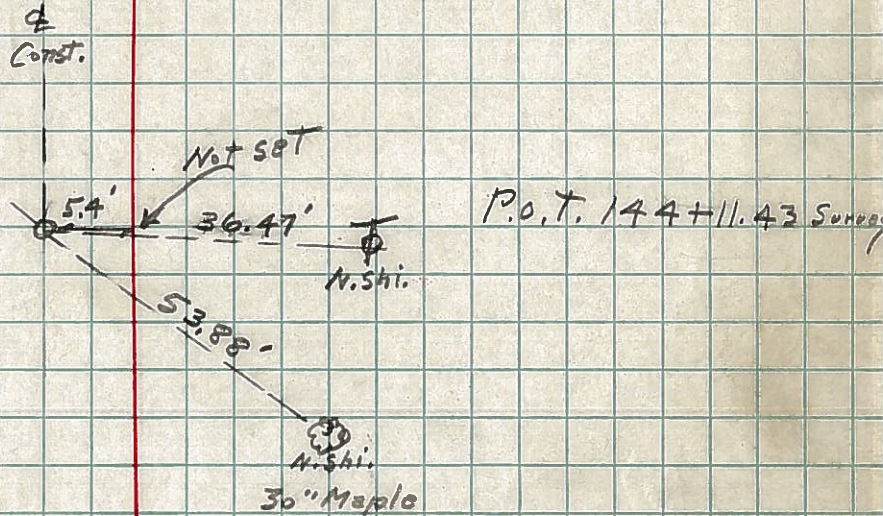 ℄
Const.
Not set
5.4'
36.47'
P.O.T. 144+11.43 Survey
N.Shi.
53.88'
N.Shi.
30" Maple